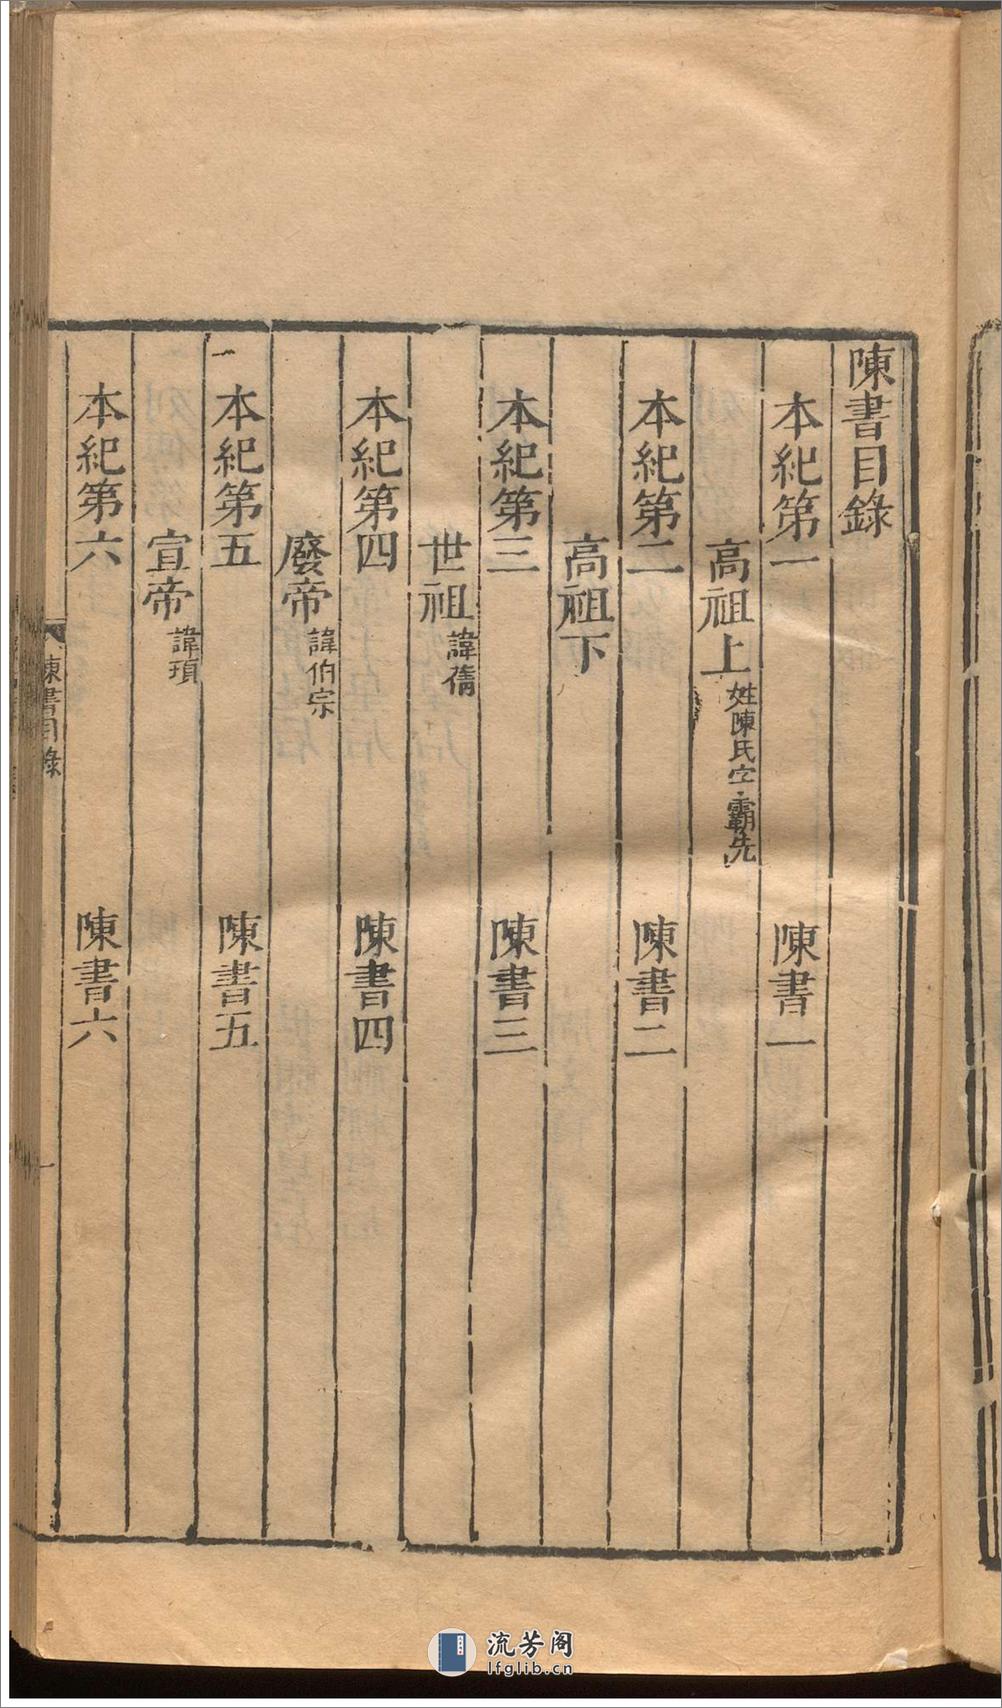 陳書目錄
本紀第一 陳書一
高祖上 姓陳氏字霸先
本紀第二 陳書二
高祖下
本紀第三 陳書三
世祖 諱蒨
本紀第四 陳書四
廢帝 諱伯宗
本紀第五 陳書五
宣帝 諱頊
本紀第六 陳書六
陳書目錄 一
流芳阁
lfglib.cn